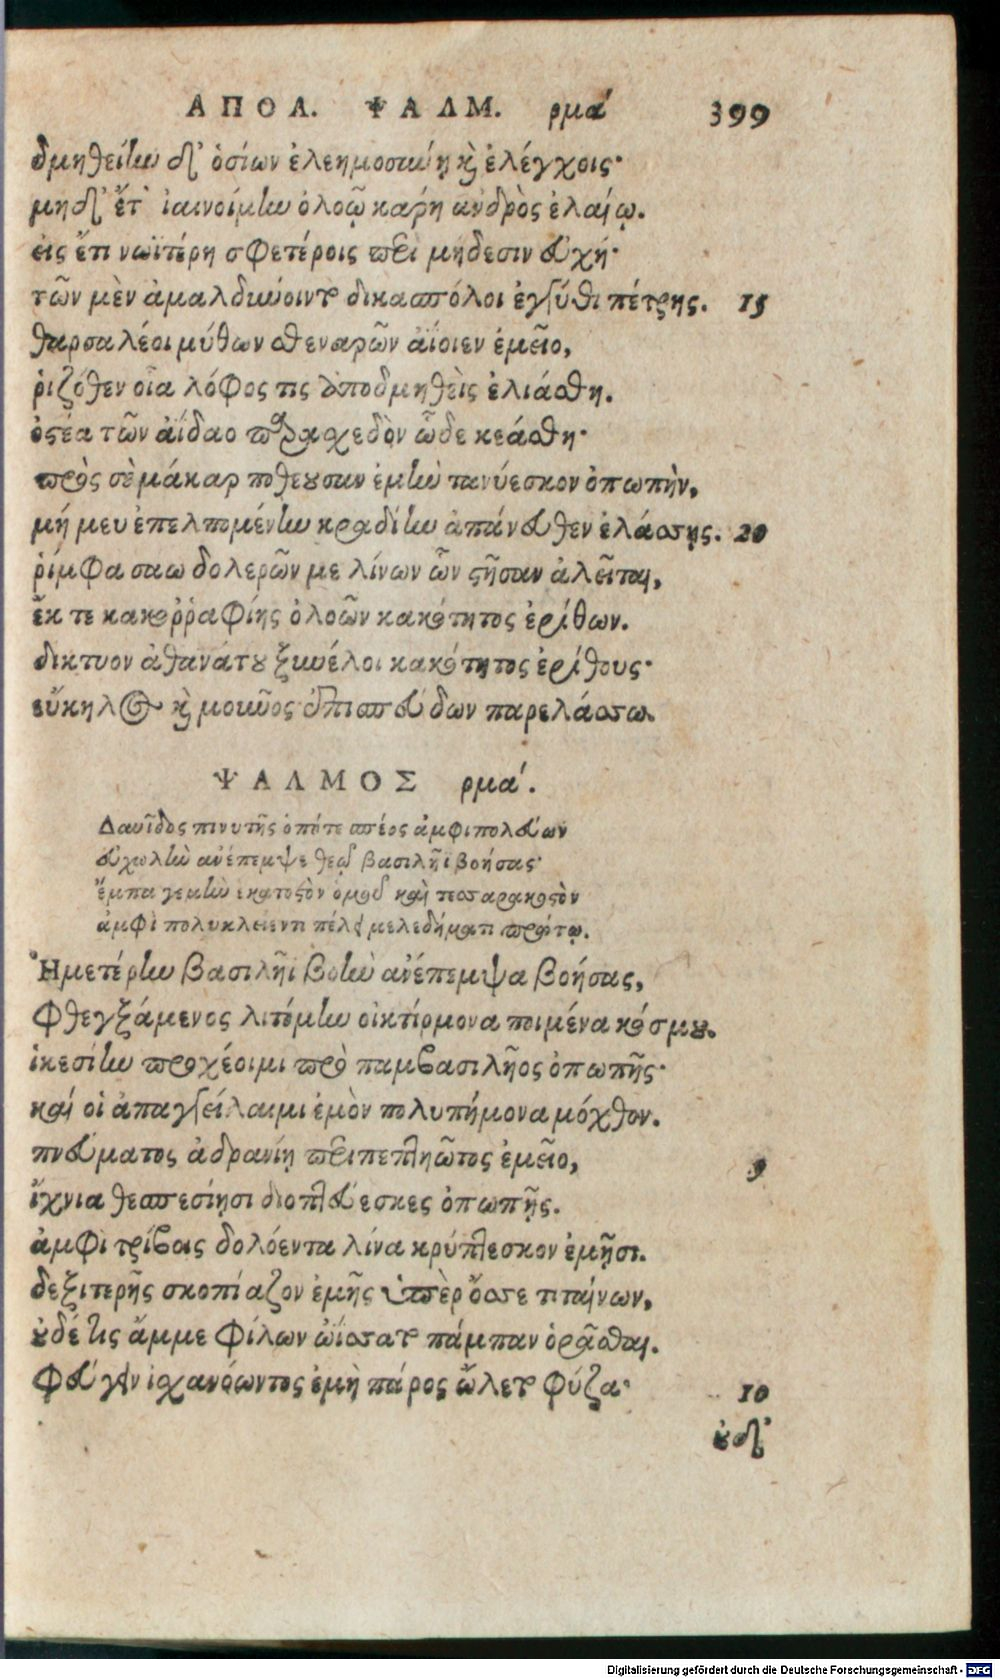 ΑΠΟΛ. ΨΑΛΜ. ρμα΄ 399
δμηθείην δ' ὁσίων ἐλεημοσύνῃ καὶ ἐλέγχοις·
μηδ' ἔτ' ἰαινοίμην ὀλοῷ κάρη ἀνδρὸς ἐλαίῳ.
εἰς ἔτι νωϊτέρη σφετέροις περὶ μήδεσιν εὐχή·
τῶν μὲν ἀμαλδύνοιντο δικασπόλοι ἐγγύθι πέτρης. 15
θαρσαλέοι μύθων σθεναρῶν ἀΐοιεν ἐμεῖο,
ῥιζόθεν οἷα λόφος τις ὑποδμηθεὶς ἐλιάσθη.
ὀστέα τῶν ἀΐδαο παρασχεδὸν ὧδε κεάσθη·
πρὸς σὲ μάκαρ ποθέουσαν ἐμὴν τανύεσκον ὀπωπὴν,
μή μευ ἐπελπομένην κραδίην ἀπάνευθεν ἐλάσσῃς. 20
ῥίμφα σάω δολερῶν με λίνων ὧν στῆσαν ἀλεῖται,
ἔκ τε κακοῤῥαφίης ὀλοῶν κακότητος ἐρίθων.
δίκτυον ἀθανάτου ξυνέλοι κακότητος ἐρίθους·
εὔκηλος καὶ μοῦνος ἐπισπεύδων παρελάσσω.
ΨΑΛΜΟΣ ρμα΄.
Δαυῖδος πινυτῆς ὁπότε σπέος ἀμφιπολεύων
εὐχωλὴν ἀνέπεμψε θεοῦ βασιλῆϊ βοήσας·
ἔμπα γε μὴν ἑκατοστὸν ὁμοῦ καὶ τεσσαρακοστὸν
ἀμφὶ πολυκλείεντι πέλει μελεδήματι πρώτῳ.
Ἡμετέρην βασιλῆϊ βοὴν ἀνέπεμψα βοήσας,
Φθεγξάμενος λιτόμην οἰκτίρμονα ποιμένα κόσμου.
ἱκεσίην προχέοιμι πρὸ παμβασιλῆος ὀπωπῆς·
καί οἱ ἀπαγγείλαιμι ἐμὸν πολυπήμονα μόχθον.
πνεύματος ἀδρανίῃ περιπεπληῶτος ἐμεῖο, 5
ἴχνια θεσπεσίῃσι διοπτεύεσκες ὀπωπῇς.
ἀμφὶ τρίβοις δολόεντα λίνα κρύπτεσκον ἐμῇσι.
δεξιτερῆς σκοπίαζον ἐμῆς ὑπὲρ ὄσσε τιταίνων,
οὐδέ τις ἄμμε φίλων ὠΐσσατο πάμπαν ὁρᾶσθαι.
Φευγέμεν ἰχανόωντος ἐμὴ πάρος ὤλετο φύζα· 10
οὐδ'